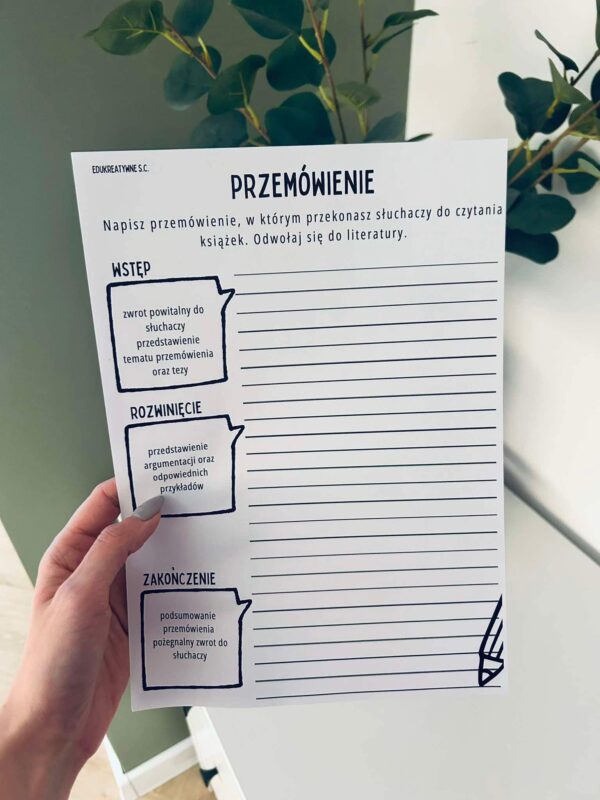 EDUKREATYWNE S.C.
PRZEMÓWIENIE
Napisz przemówienie, w którym przekonasz słuchaczy do czytania
książek. Odwołaj się do literatury.
WSTĘP
zwrot powitalny do
słuchaczy
przedstawienie
tematu przemówienia
oraz tezy
ROZWINIĘCIE
przedstawienie
argumentacji oraz
odpowiednich
przykładów
ZAKOŃCZENIE
podsumowanie
przemówienia
pożegnalny zwrot do
słuchaczy